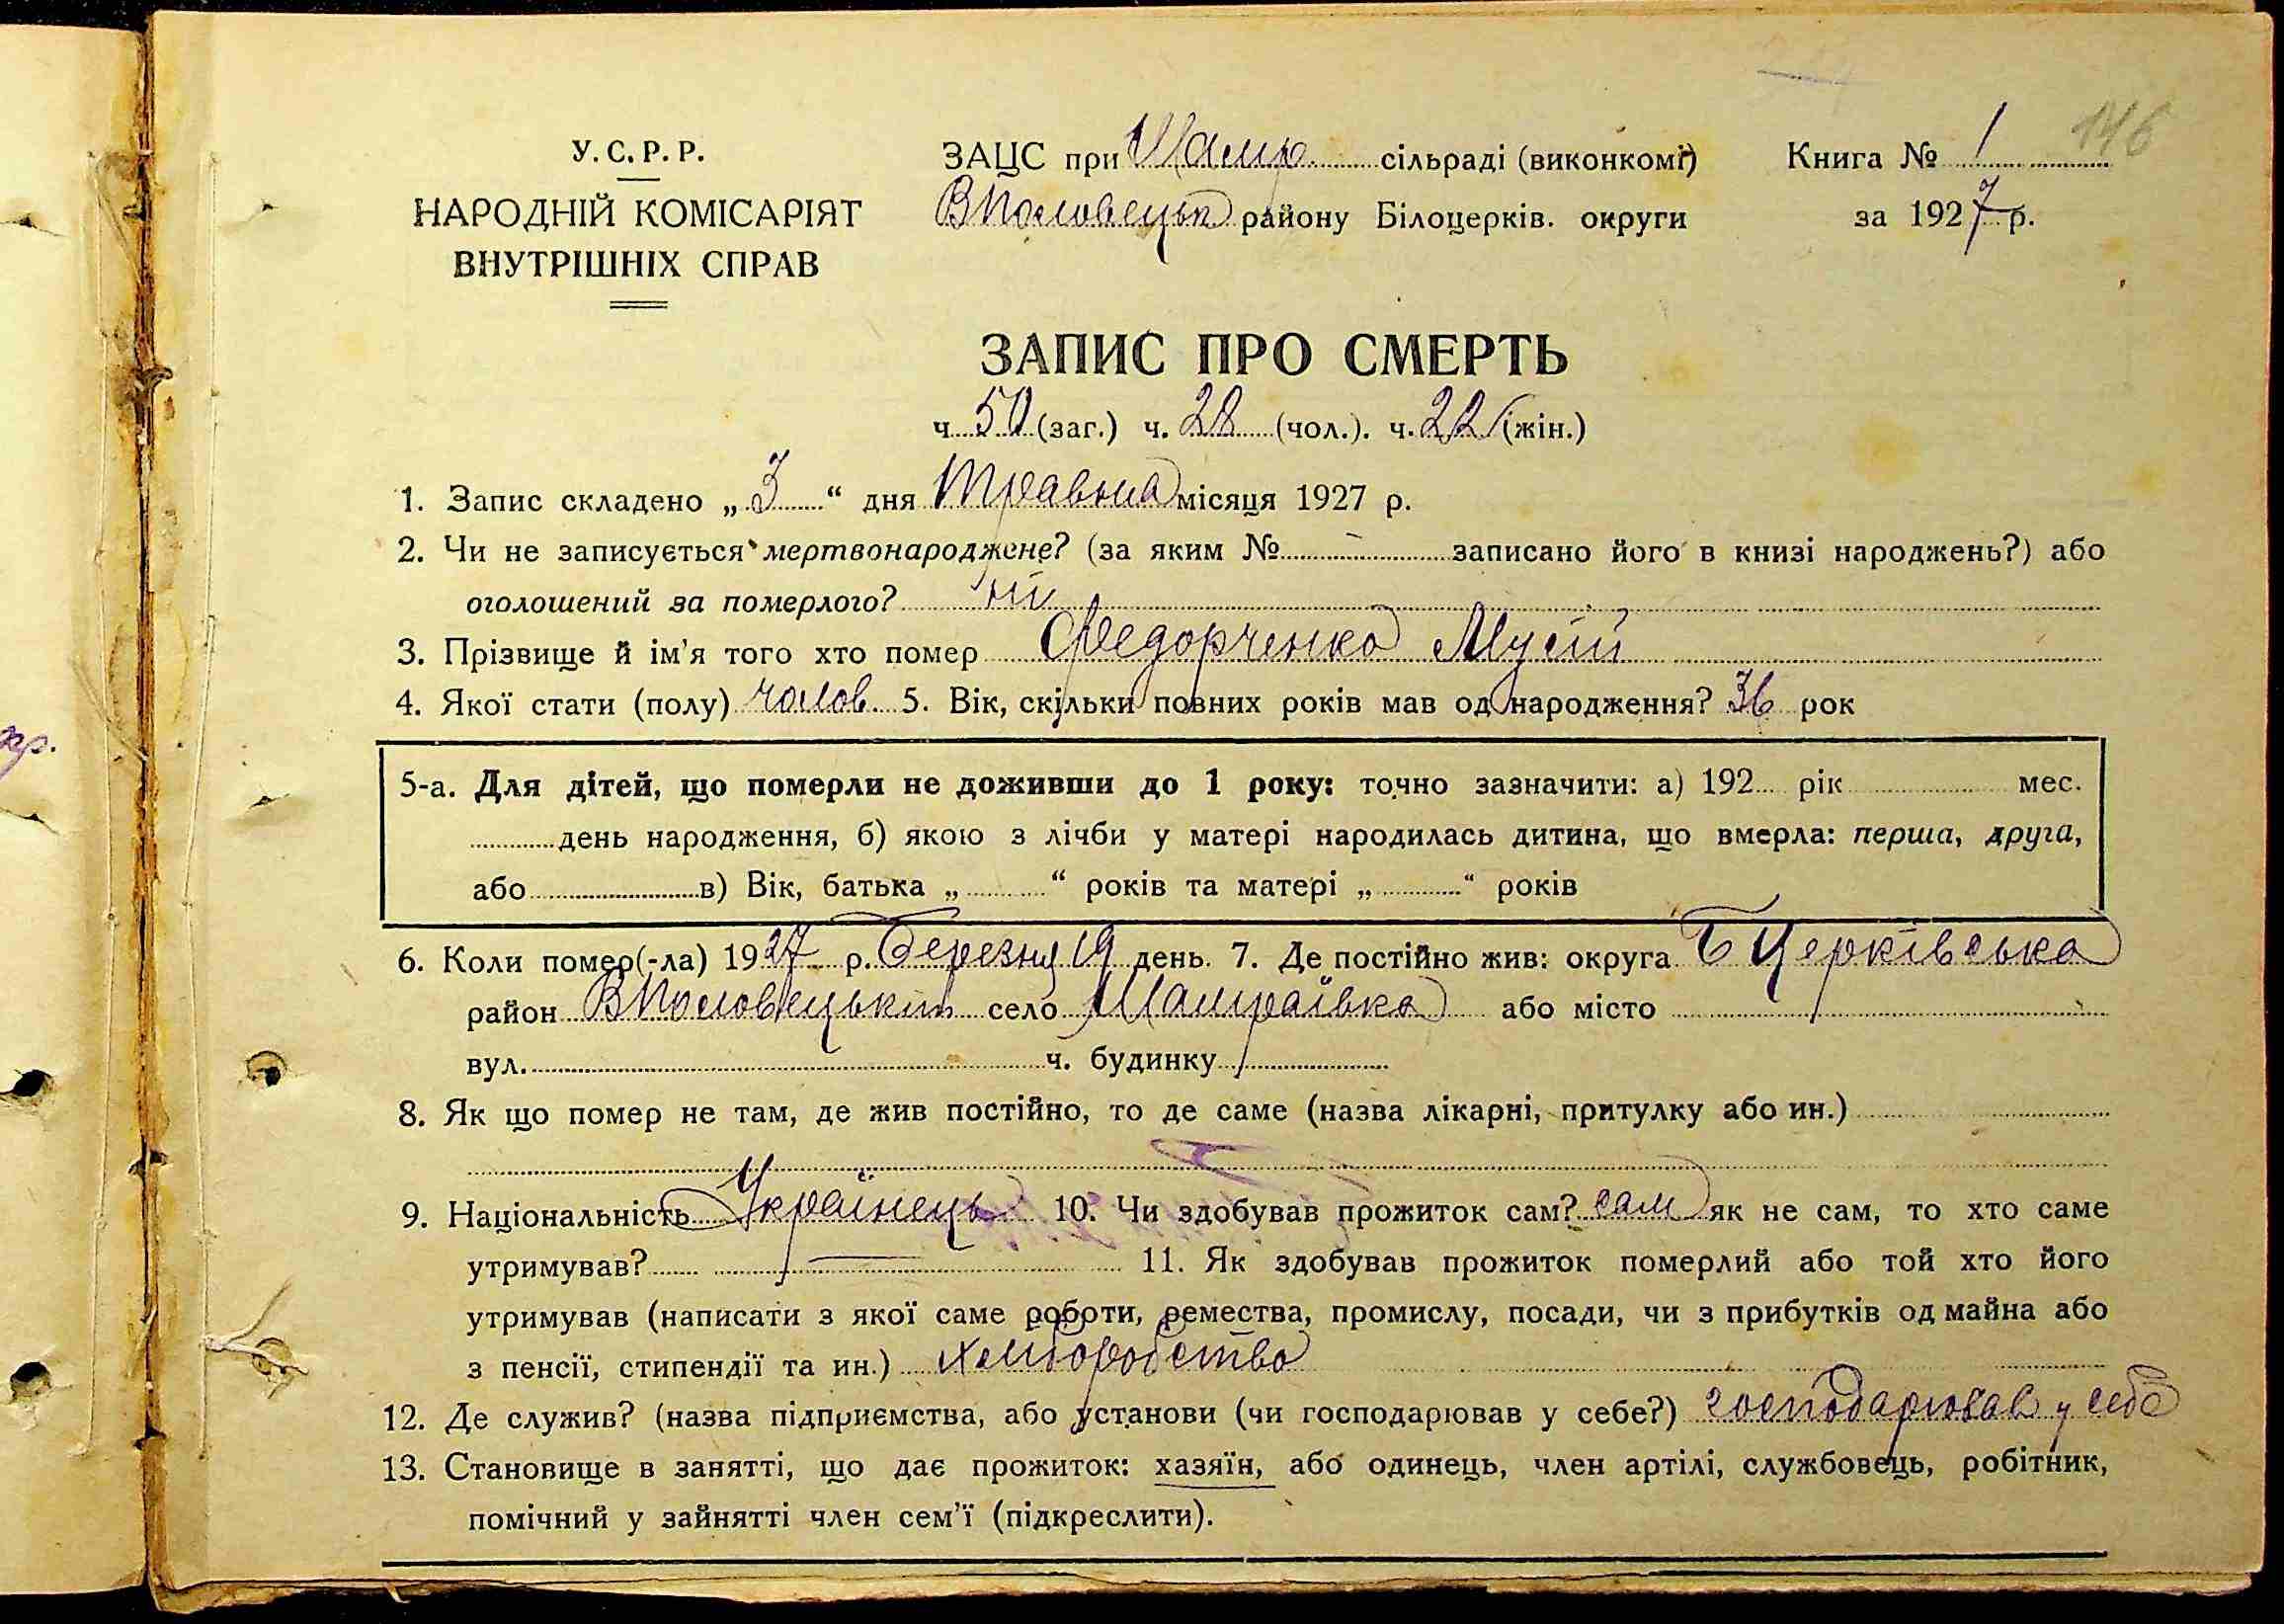 146
У.С.Р.Р. ЗАЦС при Шамр. сільраді (виконкомі) Книга № 1
НАРОДНІЙ КОМІСАРІЯТ ВПоловецьк району Білоцерків. округи за 1927 р.
ВНУТРІШНІХ СПРАВ
ЗАПИС ПРО СМЕРТЬ
ч. 50 (заг.) ч. 28 (чол.). ч. 22 (жін.)
1. Запис складено „ 3 “ дня Травня місяця 1927 р.
2. Чи не записується мертвонароджене? (за яким № – записано його в книзі народжень?) або
оголошений за померлого? ні
3. Прізвище й ім'я того хто помер Федорченко Мусій
4. Якої стати (полу) чолов. 5. Вік, скільки повних років мав од народження? 36 рок
5-а. Для дітей, що померли не доживши до 1 року: точно зазначити: а) 192... рік ... мес.
... день народження, б) якою з лічби у матері народилась дитина, що вмерла: перша, друга,
або ... в) Вік, батька „ ... “ років та матері „ ... “ років
6. Коли помер(-ла) 1927 р. Березня 19 день. 7. Де постійно жив: округа Б Церківська
район ВПоловецький село Шамраївка або місто
вул. ... ч. будинку
8. Як що помер не там, де жив постійно, то де саме (назва лікарні, притулку або ин.)
9. Національність Українець 10. Чи здобував прожиток сам? сам як не сам, то хто саме
утримував? — 11. Як здобував прожиток померлий або той хто його
утримував (написати з якої саме роботи, ремества, промислу, посади, чи з прибутків од майна або
з пенсії, стипендії та ин.) хліборобство
12. Де служив? (назва підприємства, або установи (чи господарював у себе?) господарював у себе
13. Становище в занятті, що дає прожиток: хазяїн, або одинець, член артілі, службовець, робітник,
помічний у зайнятті член сем'ї (підкреслити).